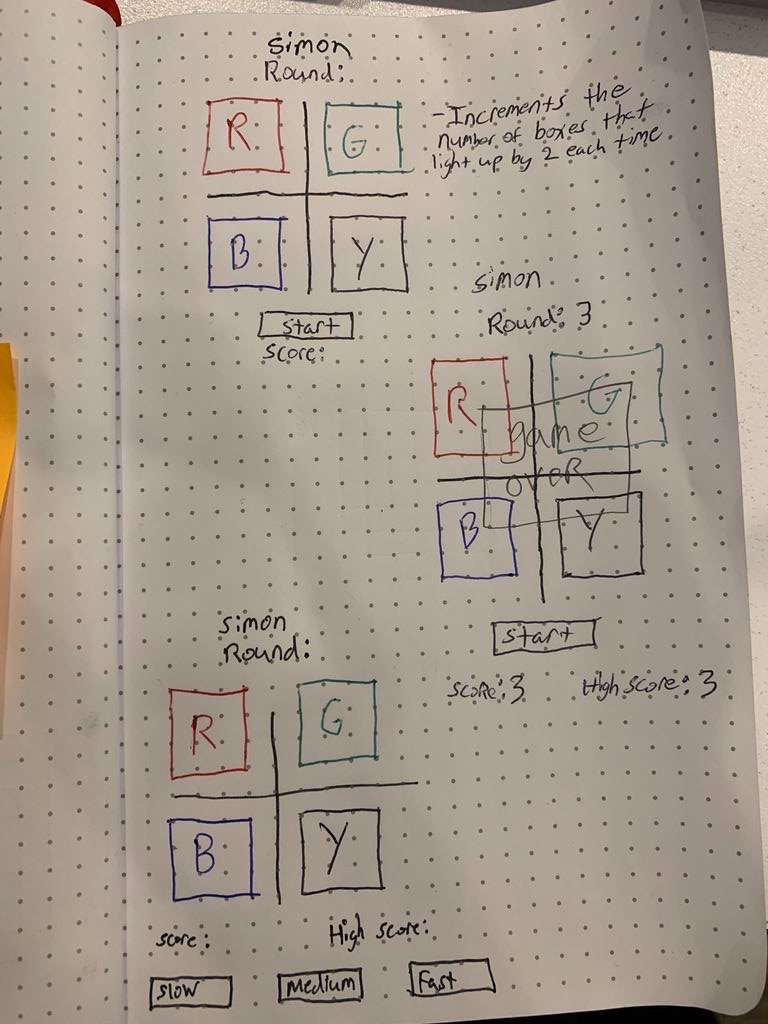 simon
Round:
R G
B Y
Start
Score:
-Increments the
number of boxes that
light up by 2 each time.
simon
Round: 3
R G
game
over
B Y
Start
score: 3 High score: 3
simon
Round:
R G
B Y
score: High score:
slow Medium Fast